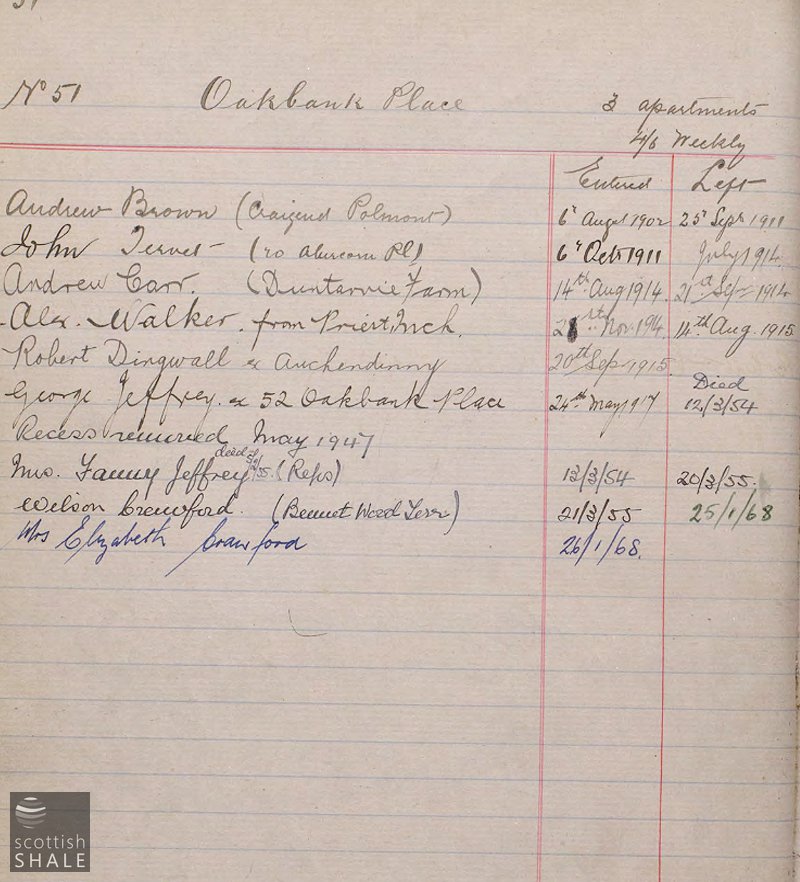 51
No 51 Oakbank Place 3 apartments
4/6 Weekly
Entered Left
Andrew Brown (Craigend Polmont) 6th August 1902 25th Sept 1911
John Tervet (20 Abercorn Pl) 6th Octr 1911 July 1914
Andrew Carr. (Duntarvie Farm) 14th Aug 1914. 21st Sep 1914
Alex. Walker. from Priest Inch. Nov. 1914. 14th Aug. 1915
Robert Dingwall ex Auchendinny 20th Sep 1915.
George Jeffrey. ex 52 Oakbank Place 24th May 1917 Died 12/3/54
Recess removed May 1947
Mrs. Fanny Jeffrey died (Reps) 13/3/54 20/3/55.
Wilson Crawford. (Bennet Wood Terr) 21/3/55 25/1/68
Mrs Elizabeth Crawford 26/1/68.
scottish
SHALE